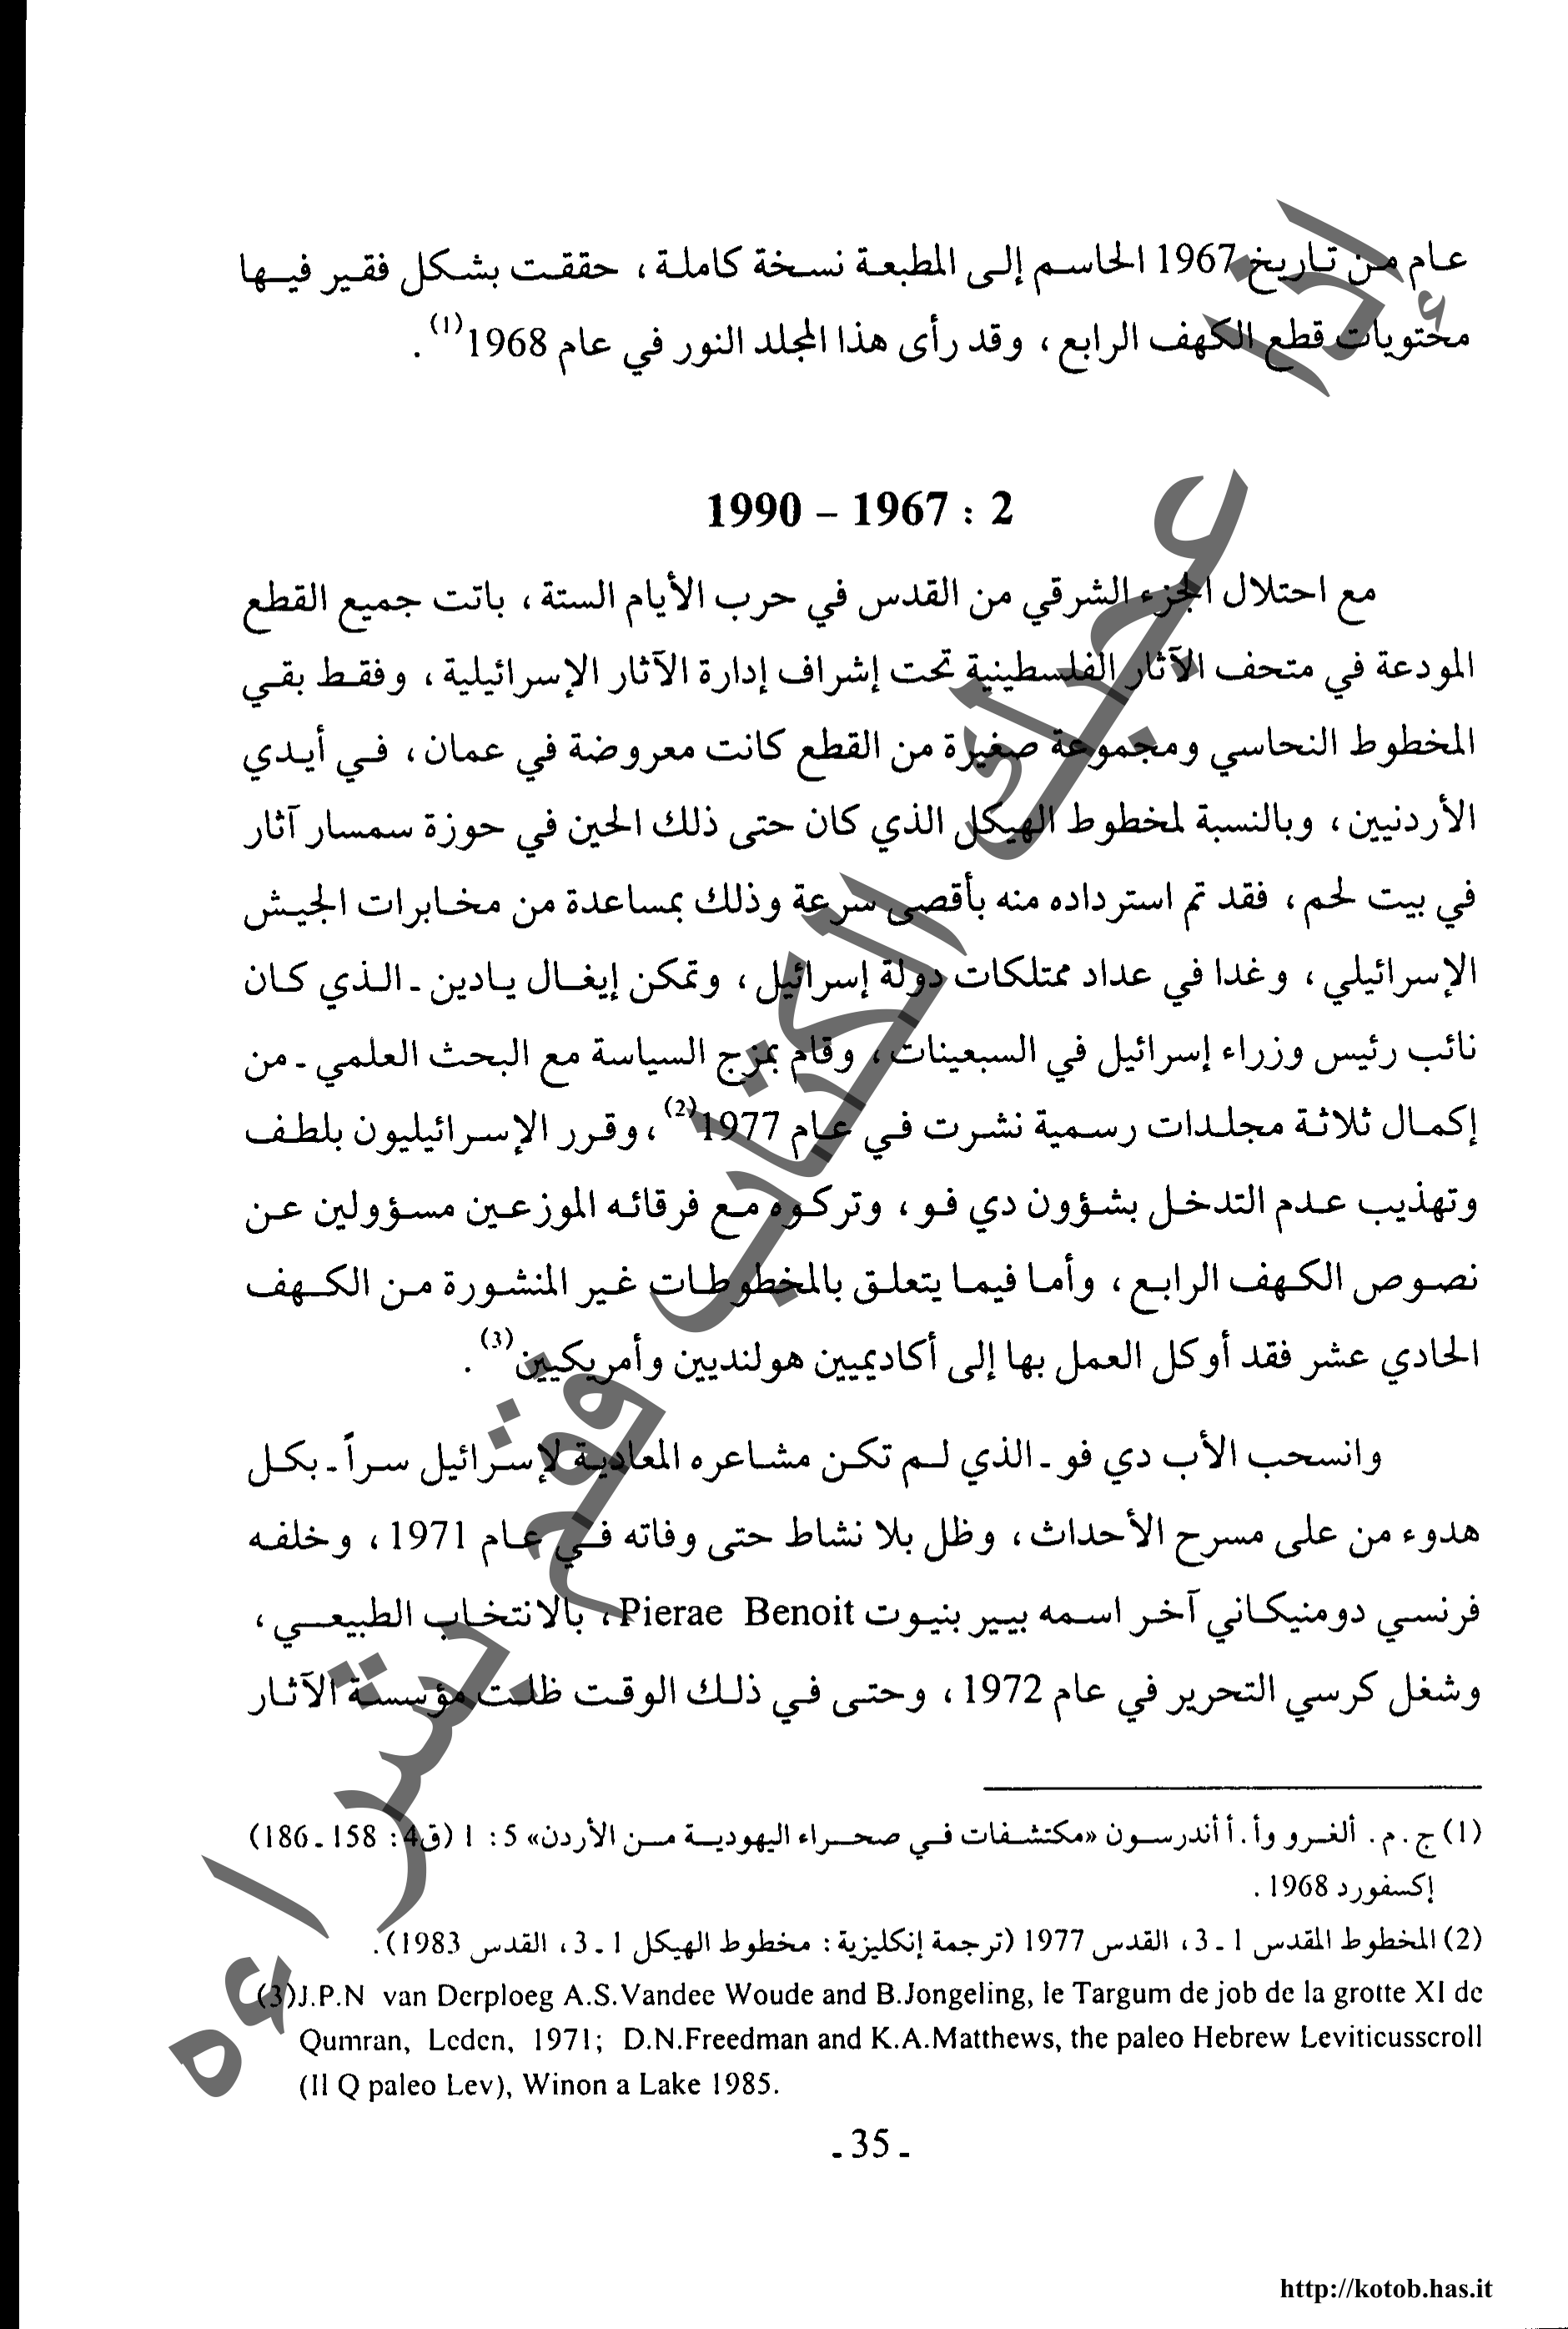 عام من تاريخ 1967 الحاسم إلى المطبعة نسخة كاملة ، حققت بشكل فقير فيها
محتويات قطع الكهف الرابع ، وقد رأى هذا المجلد النور في عام 1968(1) .
2 : 1967 – 1990
مع احتلال الجزء الشرقي من القدس في حرب الأيام الستة ، باتت جميع القطع
المودعة في متحف الآثار الفلسطينية تحت إشراف إدارة الآثار الإسرائيلية ، وفقط بقي
المخطوط النحاسي ومجموعة صغيرة من القطع كانت معروضة في عمان ، في أيدي
الأردنيين ، وبالنسبة لمخطوط الهيكل الذي كان حتى ذلك الحين في حوزة سمسار آثار
في بيت لحم ، فقد تم استرداده منه بأقصى سرعة وذلك بمساعدة من مخابرات الجيش
الإسرائيلي ، وغدا في عداد ممتلكات دولة إسرائيل ، وتمكن إيغال يادين ـ الذي كان
نائب رئيس وزراء إسرائيل في السبعينات ، وقام بمزج السياسة مع البحث العلمي ـ من
إكمال ثلاثة مجلدات رسمية نشرت في عام 1977(2) ، وقرر الإسرائيليون بلطف
وتهذيب عدم التدخل بشؤون دي فو ، وتركوه مع فرقائه الموزعين مسؤولين عن
نصوص الكهف الرابع ، وأما فيما يتعلق بالمخطوطات غير المنشورة من الكهف
الحادي عشر فقد أوكل العمل بها إلى أكاديميين هولنديين وأمريكيين(3) .
وانسحب الأب دي فو ـ الذي لم تكن مشاعره المعادية لإسرائيل سراً ـ بكل
هدوء من على مسرح الأحداث ، وظل بلا نشاط حتى وفاته في عام 1971 ، وخلفه
فرنسي دومنيكاني آخر اسمه بيير بنيوت Pierae Benoit ، بالانتخاب الطبيعي ،
وشغل كرسي التحرير في عام 1972 ، وحتى في ذلك الوقت ظلت مؤسسة الآثار
(1) ج . م . ألغرو وأ . أ أندرسون «مكتشفات في صحراء اليهودية من الأردن» 5 : 1 (ق4 : 158 ـ 186)
إكسفورد 1968 .
(2) المخطوط المقدس 1 ـ 3 ، القدس 1977 (ترجمة إنكليزية : مخطوط الهيكل 1 ـ 3 ، القدس 1983) .
(3)J.P.N van Derploeg A.S.Vandee Woude and B.Jongeling, le Targum de job de la grotte XI de
Qumran, Leden, 1971; D.N.Freedman and K.A.Matthews, the paleo Hebrew Leviticusscroll
(Il Q paleo Lev), Winon a Lake 1985.
ـ 35 ـ
http://kotob.has.it